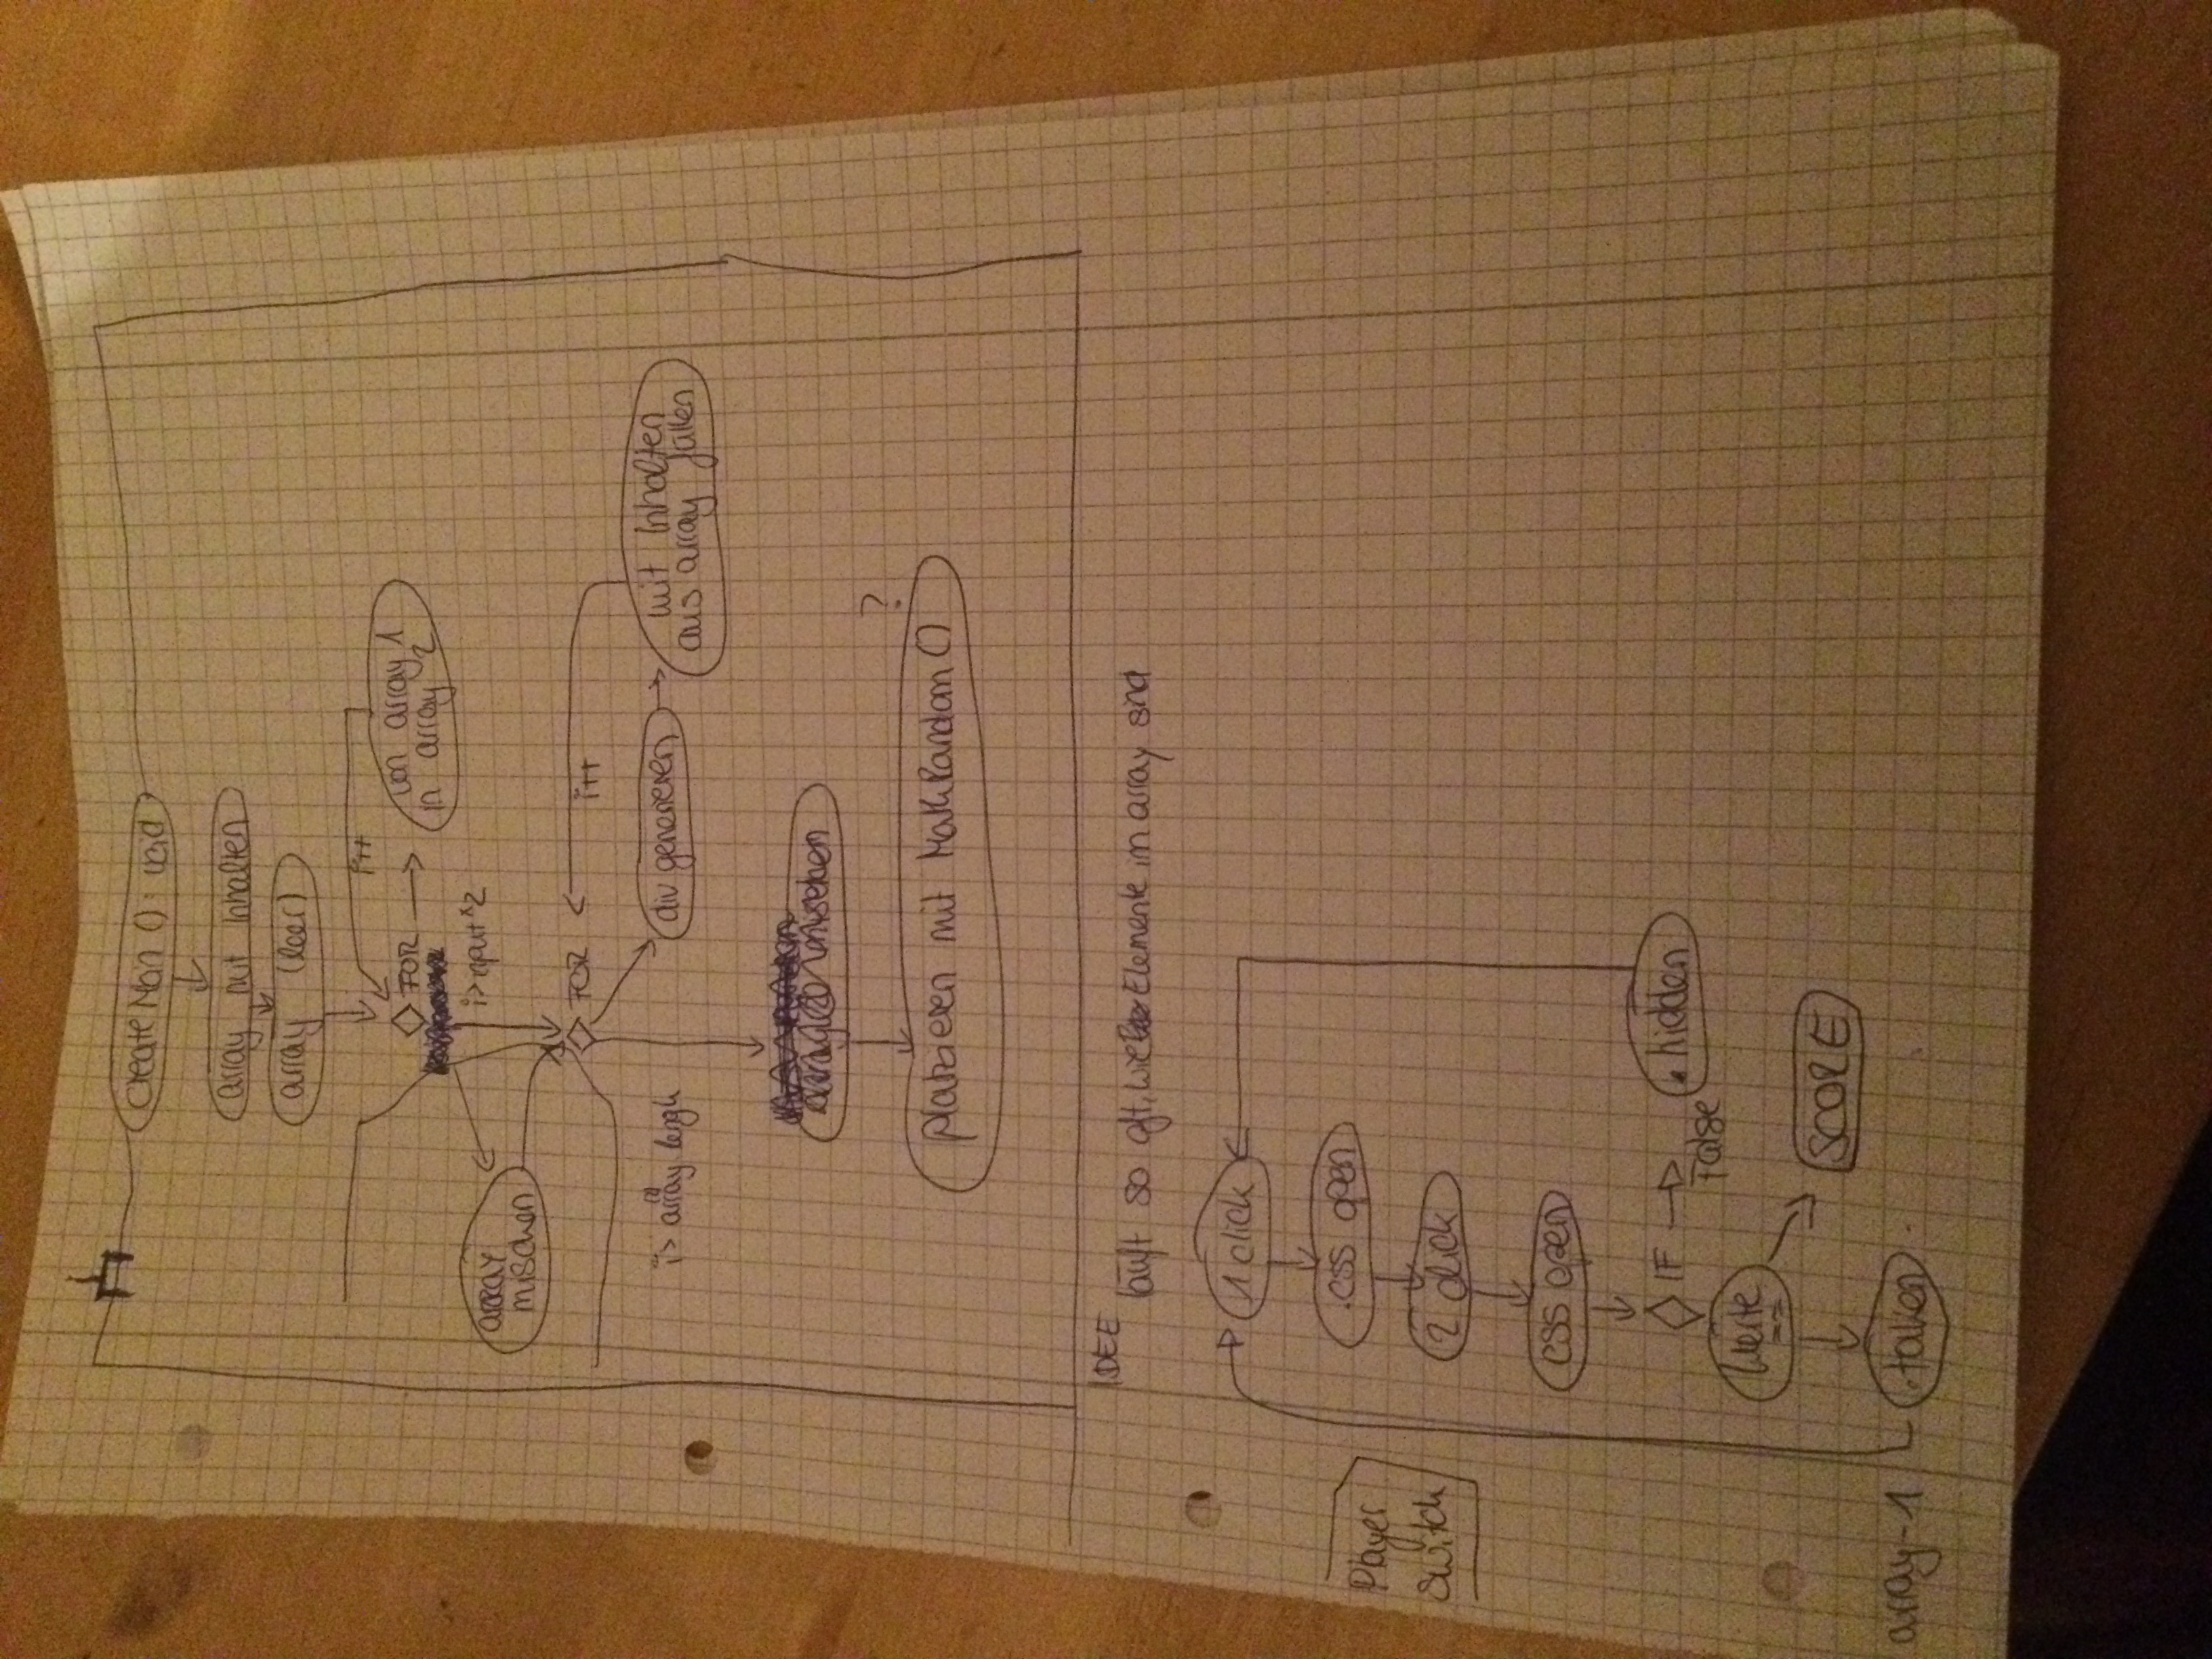 createMain () : void
array mit Inhalten
array (leer)
i++
FOR
von array 1
in array 2
i > input *2
array
mischen
FOR
i++
i > array lengh
div generieren
mit Inhalten
aus array füllen
?
platzieren mit MathRandom ()
IDEE
läuft so oft, wie Elemente im array sind
1 click
.css open
Player
Switch
2 click
css open
IF
False
.hidden
Werte
==
SCORE
array-1
.taken